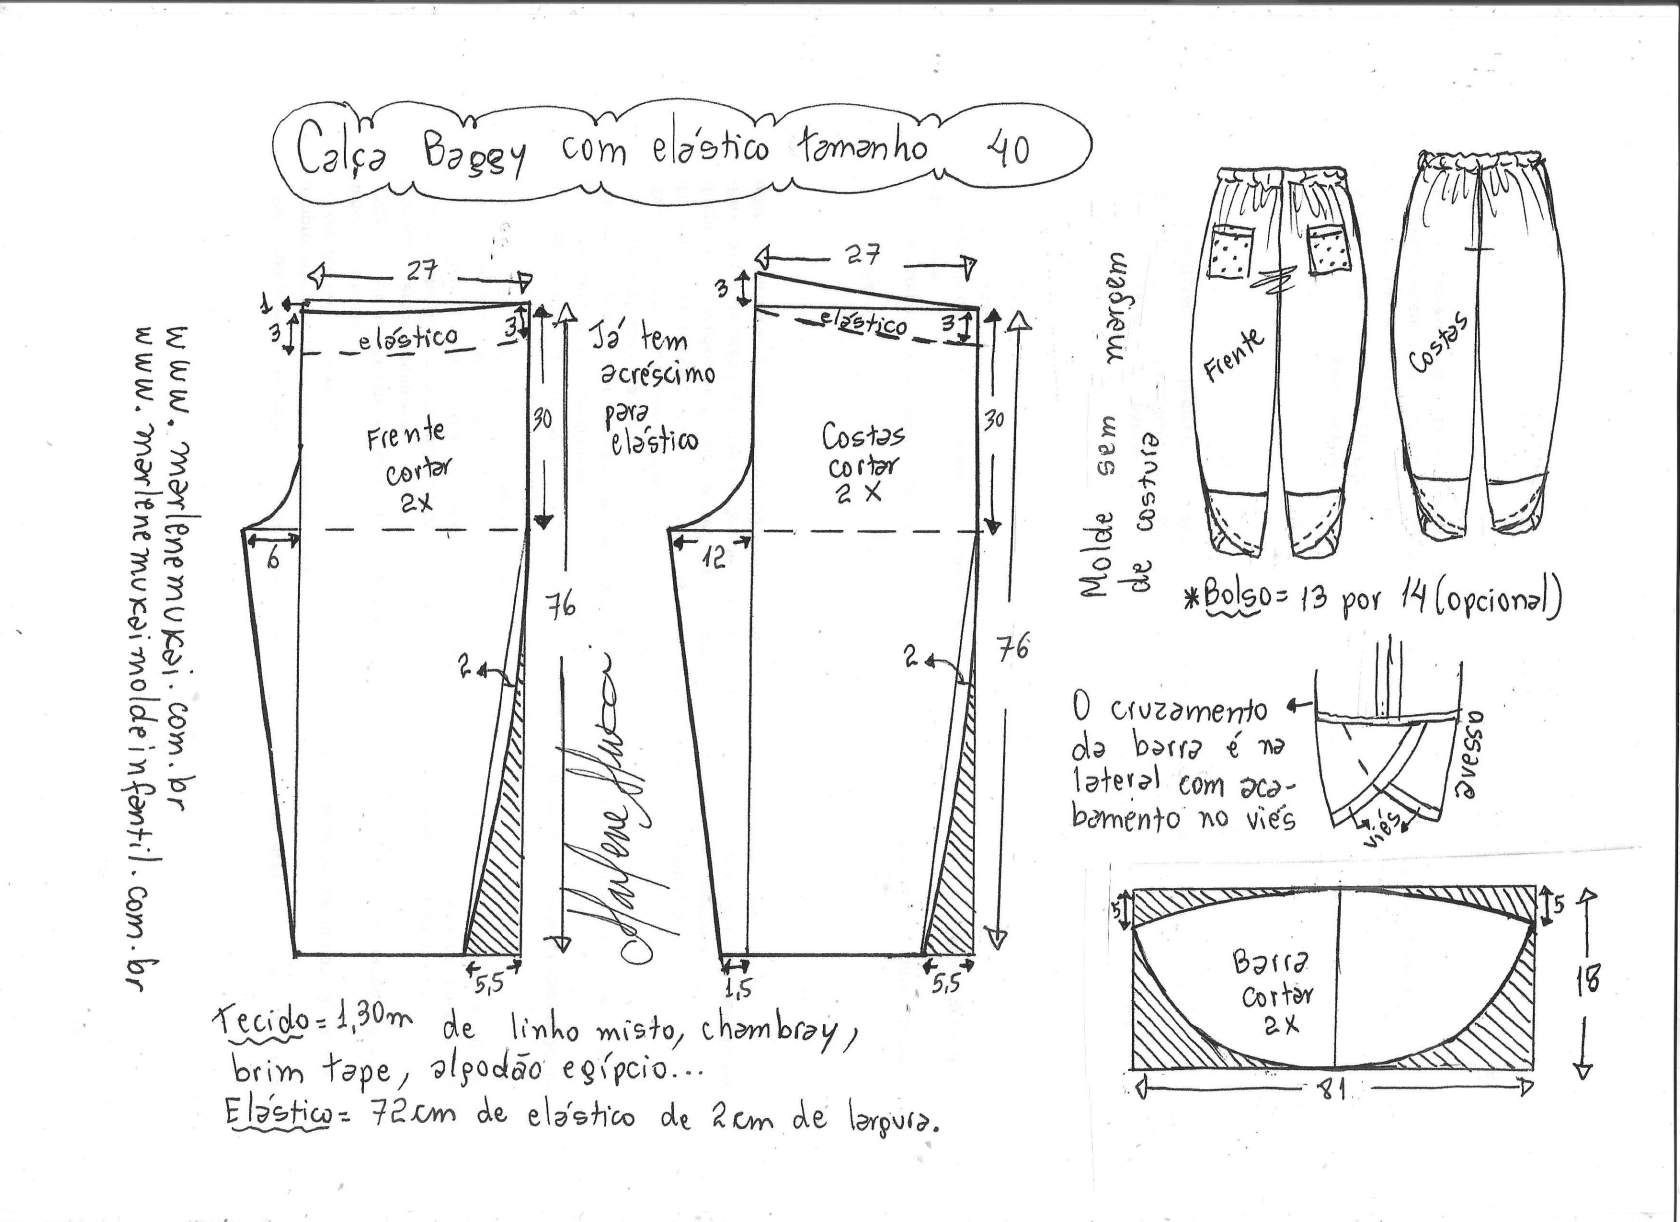 Calça Baggy com elástico tamanho 40
www.marlenemukai.com.br
www.marlenemukaimoldeinfantil.com.br
27
1
3
3
elástico
30
Frente
cortar
2X
6
76
2
5,5
Já tem
acréscimo
para
elástico
Marlene Mukai
27
3
elástico
3
30
Costas
cortar
2X
12
76
2
1,5
5,5
Molde sem margem
de costura
Frente
Costas
*Bolso= 13 por 14 (opcional)
O cruzamento
da barra é na
lateral com aca-
bamento no viés
avesso
viés
5
5
Barra
Cortar
2X
18
81
Tecido= 1,30m de linho misto, chambray,
brim tape, algodão egípcio...
Elástico= 72cm de elástico de 2cm de largura.